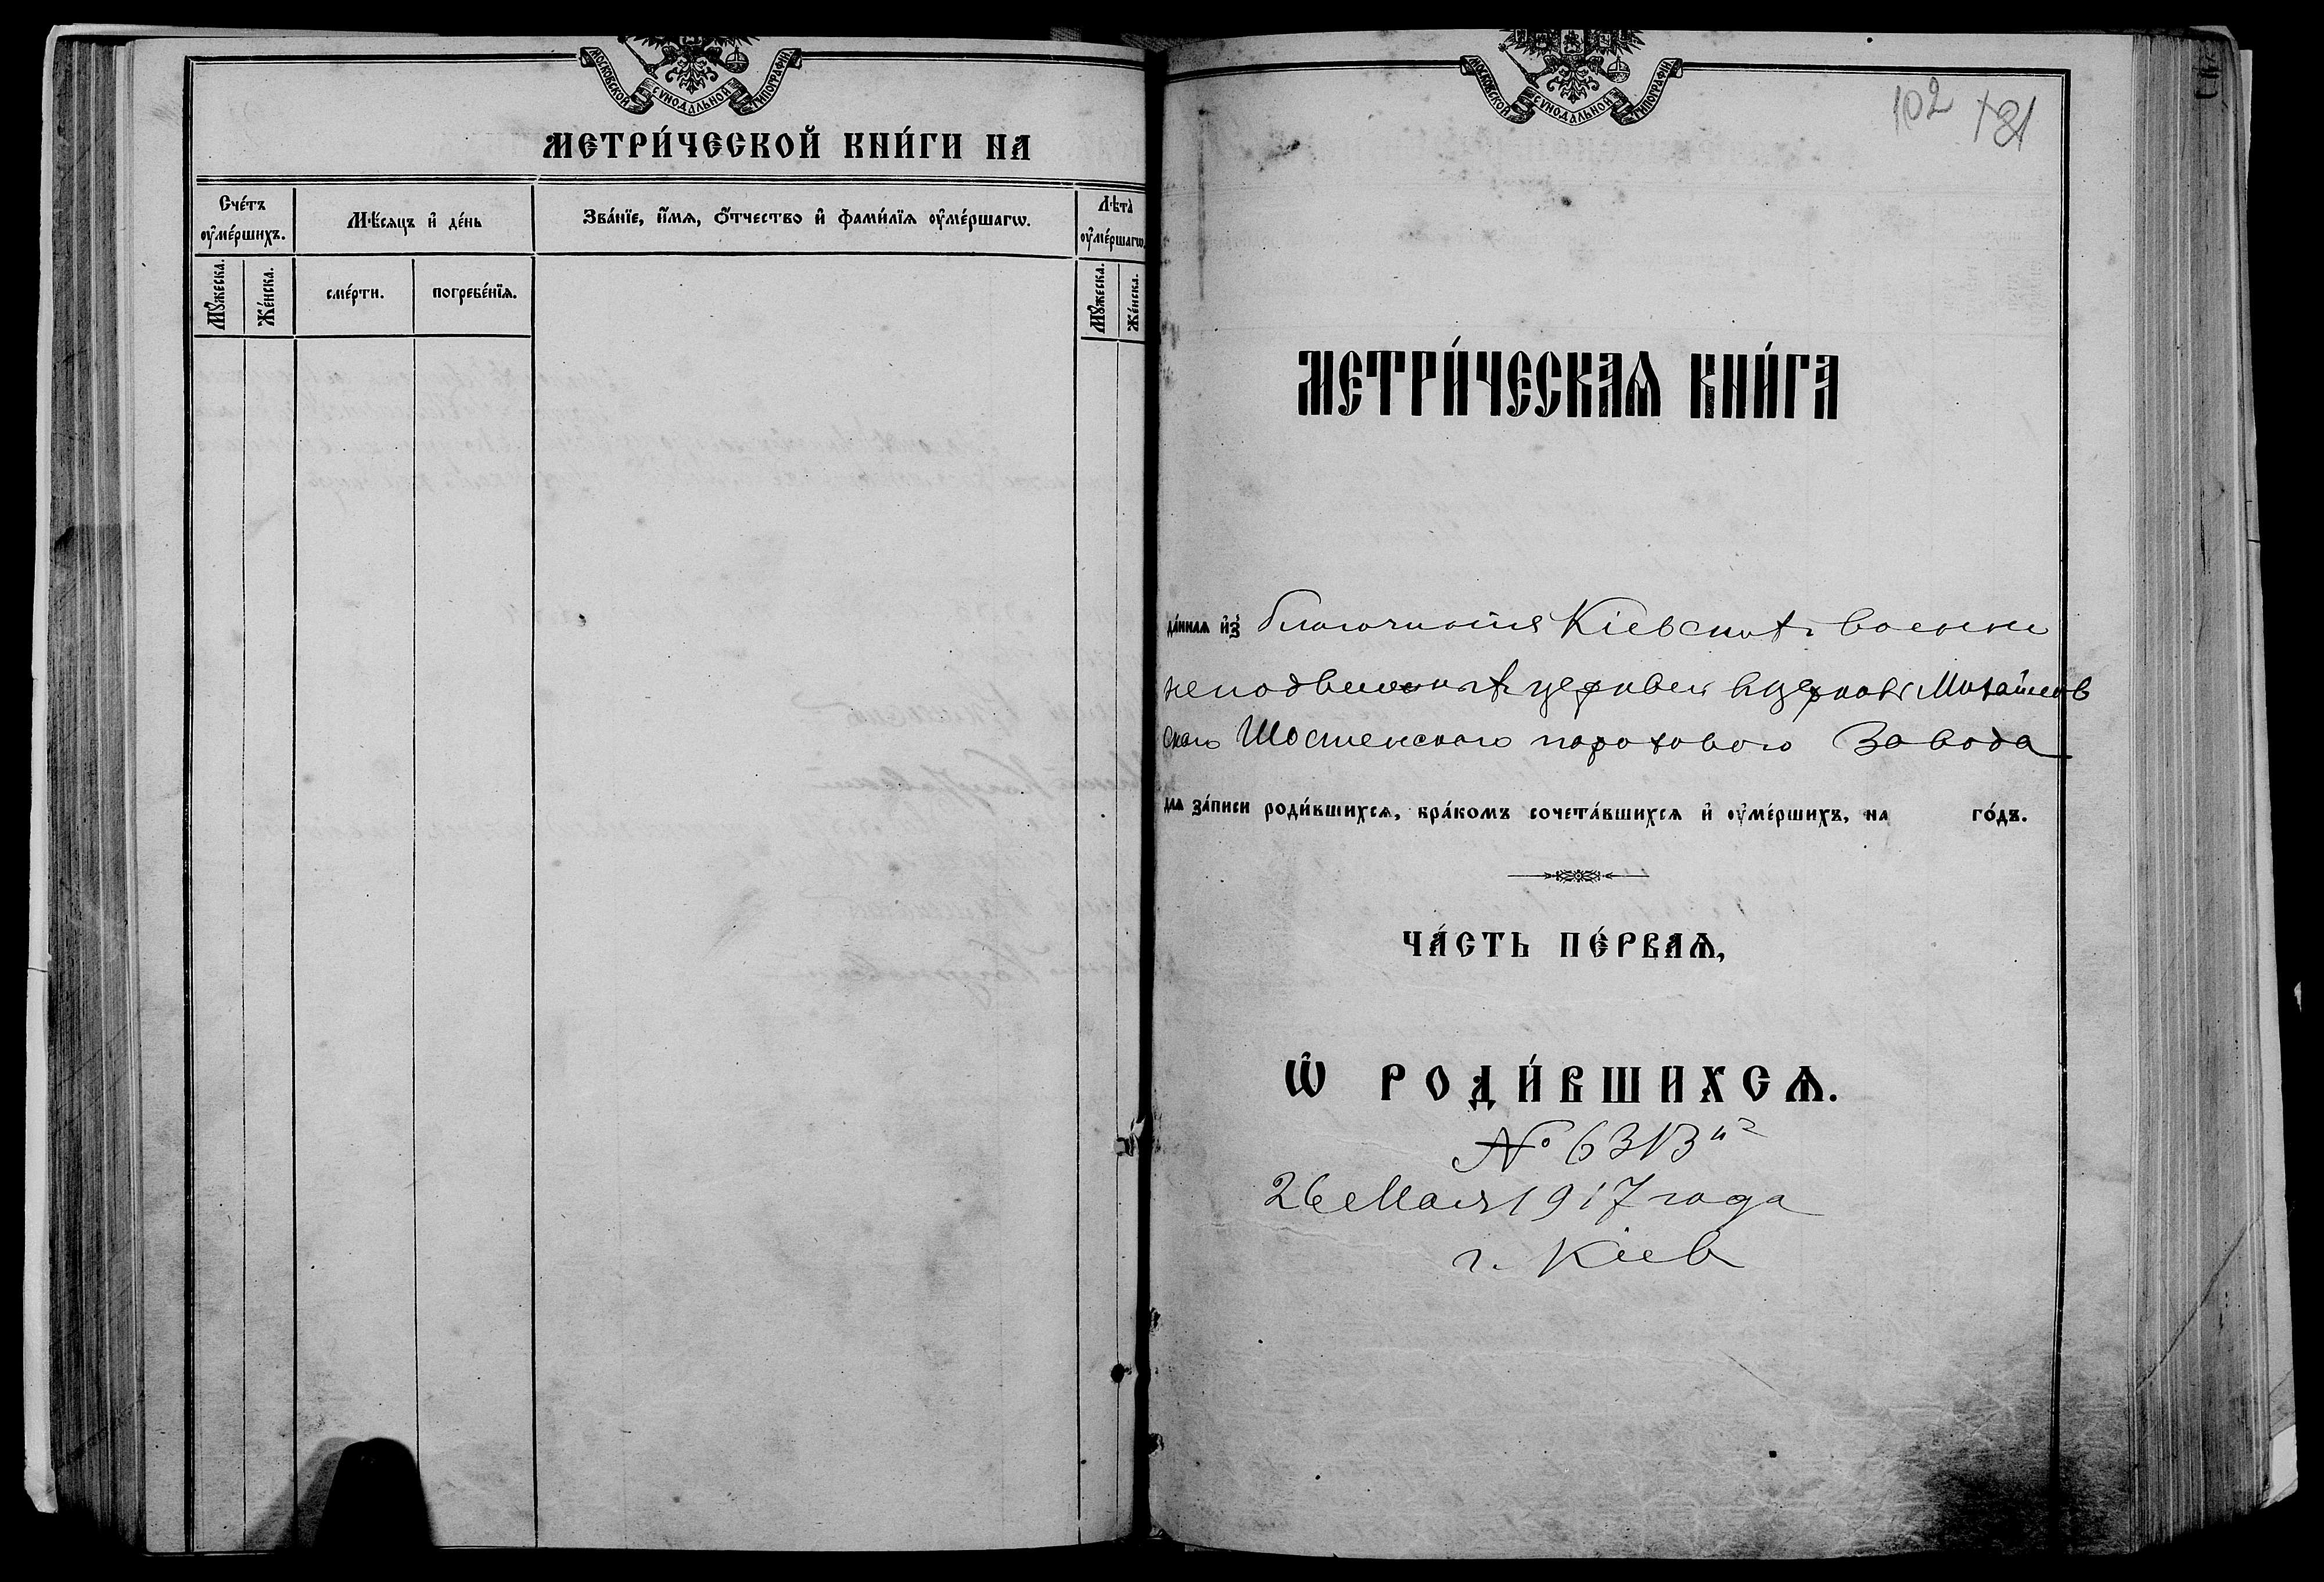 МОСКОВСКОЙ СѴНОДАЛЬНОЙ ТИПОГРАФІИ
МЕТРИ́ЧЕСКОЙ КНИ́ГИ НА
Сче́тъ ᲂу҆ме́ршихъ.
Мѣ́сяцъ и҆ де́нь
Зва́нїе, и҆́мѧ, ѻ҆́тчество и҆ фами́лїѧ ᲂу҆ме́ршагѡ.
Лѣ́та ᲂу҆ме́ршагѡ.
Мꙋ́жеска.
Же́нска.
сме́рти.
погребе́нїѧ.
Мꙋ́жеска.
Же́нска.
МОСКОВСКОЙ СѴНОДАЛЬНОЙ ТИПОГРАФІИ
102 181
МЕТРИ́ЧЕСКАѦ КНИ́ГА
да́ннаѧ и҆з̾ благочинія Кіевскихъ военно
неподвижныхъ церквей в церковь Михайлов
скаго Шостенскаго порохового Завода
для за́писи роди́вшихсѧ, бра́комъ сочета́вшихсѧ и҆ ᲂу҆ме́ршихъ, на го́дъ.
ЧА́СТЬ ПЕ́РВАѦ,
Ѡ҆ РОДИ́ВШИХСѦ.
№ 6313
26 Мая 1917 года
г. Кіев